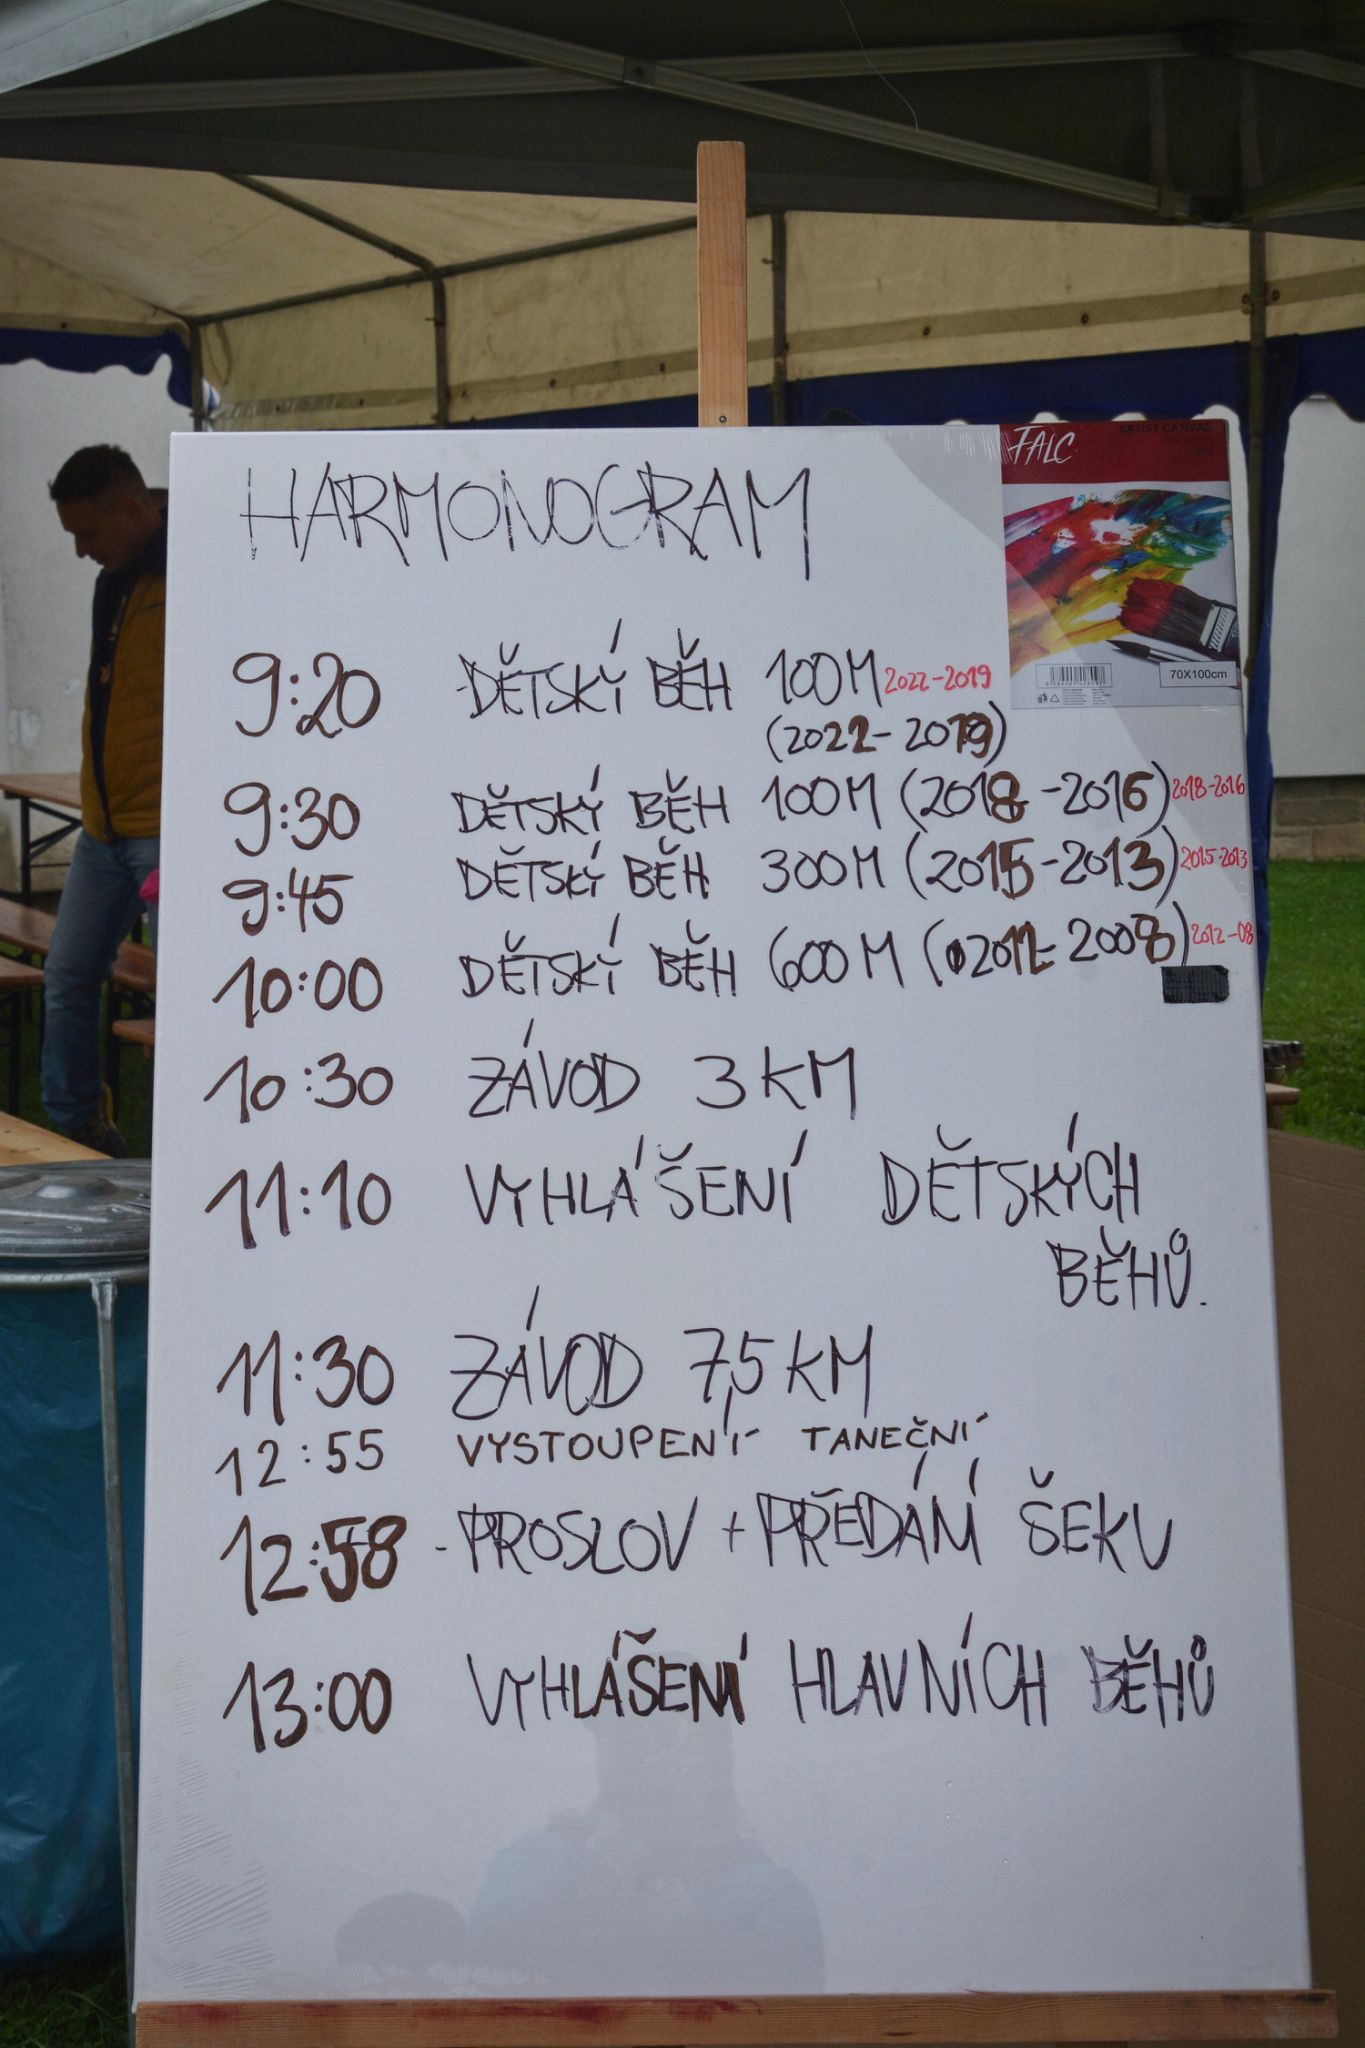 FALC
ARTIST CANVAS
70X100cm
HARMONOGRAM
9:20 DĚTSKÝ BĚH 100M 2022-2019
(2022-2019)
9:30 DĚTSKÝ BĚH 100M (2018-2016) 2018-2016
9:45 DĚTSKÝ BĚH 300M (2015-2013) 2015-2013
10:00 DĚTSKÝ BĚH 600M (2012-2008) 2012-08
10:30 ZÁVOD 3KM
11:10 VYHLÁŠENÍ DĚTSKÝCH
BĚHŮ.
11:30 ZÁVOD 7,5KM
12:55 VYSTOUPENÍ TANEČNÍ
12:58 - PROSLOV + PŘEDÁNÍ ŠEKU
13:00 VYHLÁŠENÍ HLAVNÍCH BĚHŮ